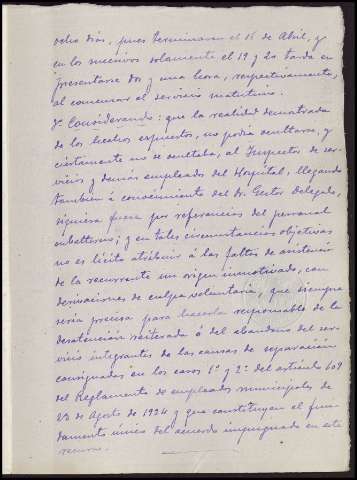 ocho días, pues terminaron el 16 de Abril, y
en los sucesivos solamente el 19 y 20 tardó en
presentarse dos y una hora, respectivamente,
al comenzar el servicio matutino.
Considerando: que la realidad demostrada
de los hechos expuestos, no podía ocultarse, y
ciertamente no se ocultaba, al Inspector de ser-
vicios y demás empleados del Hospital, llegando
también á conocimiento del Sr. Gestor Delegado,
siquiera fuera por referencias del personal
subalterno; y en tales circunstancias objetivas
no es lícito atribuir á las faltas de asistencia
de la recurrente un origen inmotivado, con
derivaciones de culpa voluntaria, que siempre
sería precisa para hacerla responsable de la
desatención reiterada ó del abandono del ser-
vicio integrantes de las causas de separación
consignadas en los casos 1º y 2º del artículo 109
del Reglamento de empleados municipales de
23 de Agosto de 1924 y que constituyen el fun-
damento único del acuerdo impugnado en este
recurso.